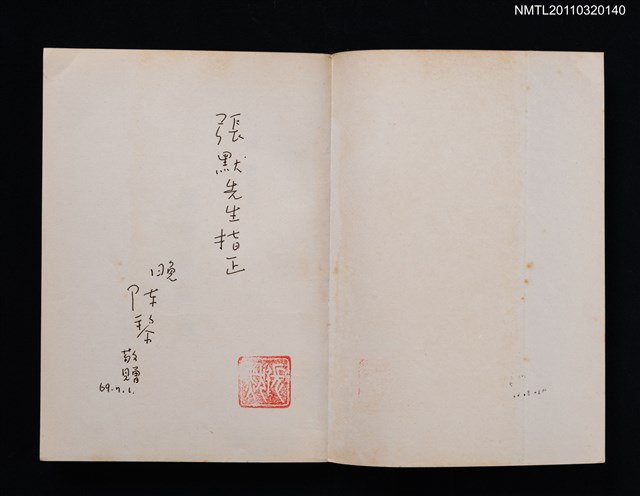 NMTL20110320140
張默先生指正
晚
陳黎
敬贈
69.7.1.